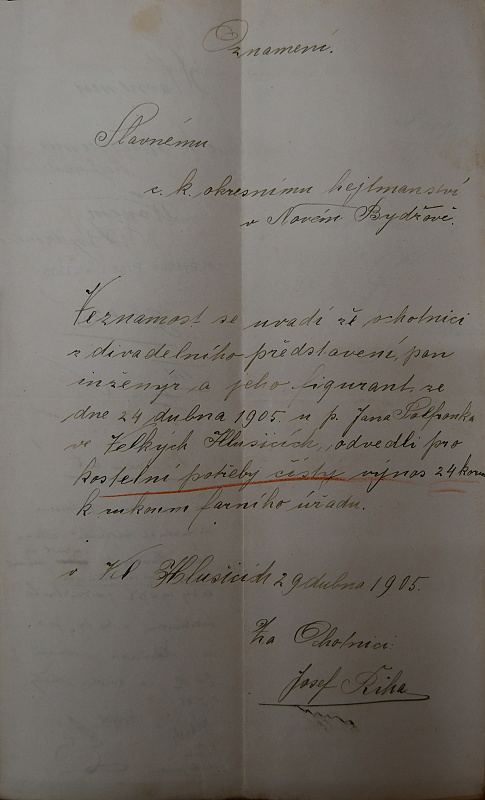 Oznamení.
Slavnému
c. k. okresnímu hejtmanství
v Novém Bydžově.
Veznamost se uvadí že ochotnici
z divadelního představení, pan
inženýr a jeho figurant, ze
dne 24 dubna 1905. u p. Jana
ve Velkých Hlušicích, odvedli pro
kostelní potřeby čistý výnos 24 korun
k rukoum farního úřadu.
v Vel Hlušicích 29 dubna 1905.
Za Ochotnici
Josef Říha